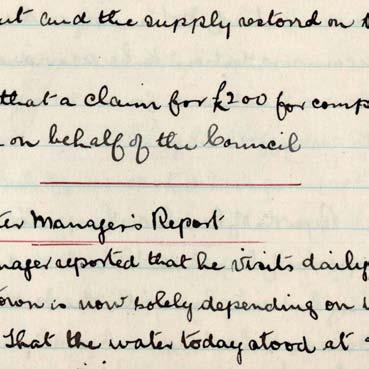 and the supply restord on
that a claim for £200 for
on behalf of the Council
Manager's Report
reported that he visits daily
is now solely depending on
That the water today stood at